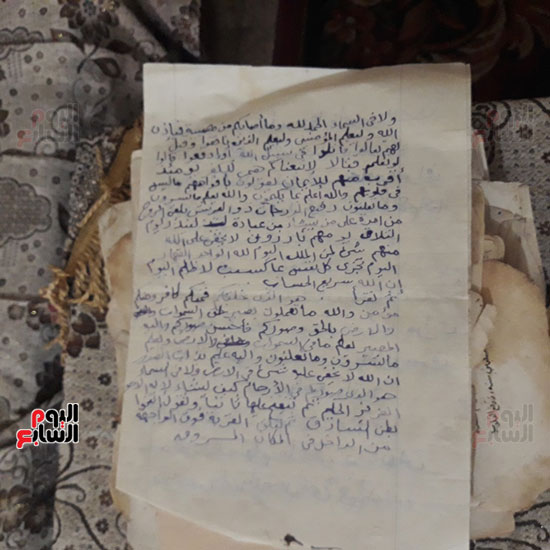 ولا فى السماء الحمد لله وما أصابكم من مصيبة فبإذن
الله وليعلم المؤمنين وليعلم الذين نافقوا وقيل
لهم تعالوا قاتلوا فى سبيل الله أو ادفعوا قالوا
لو نعلم قتالا لاتبعناكم هم للكفر يومئذ
أقرب منهم للإيمان يقولون بأفواههم ما ليس
فى قلوبهم والله أعلم بما يكتمون والله يعلم ما تسرون
وما تعلنون رفيع الدرجات ذو العرش يلقى الروح
من امره على من يشاء من عباده لينذر يوم
التلاق يوم هم بارزون لا يخفى على الله
منهم شئ لمن الملك اليوم لله الواحد القهار
اليوم تجزى كل نفس بما كسبت لا ظلم اليوم
إن الله سريع الحساب
هو الذى خلقكم فمنكم كافر ومنكم
مؤمن والله بما تعملون بصير خلق السموات
والارض بالحق وصوركم فأحسن صوركم واليه
المصير يعلم ما فى السموات والارض ويعلم
ما تسرون وما تعلنون والله عليم بذات الصدور
ان الله لا يخفى عليه شئ فى الارض ولا فى السماء
هو الذى يصوركم فى الارحام كيف يشاء لا اله الا هو
العزيز الحكيم ثم
فوق الواجهة
من الداخل فى المكان المسروق
اليوم السابع